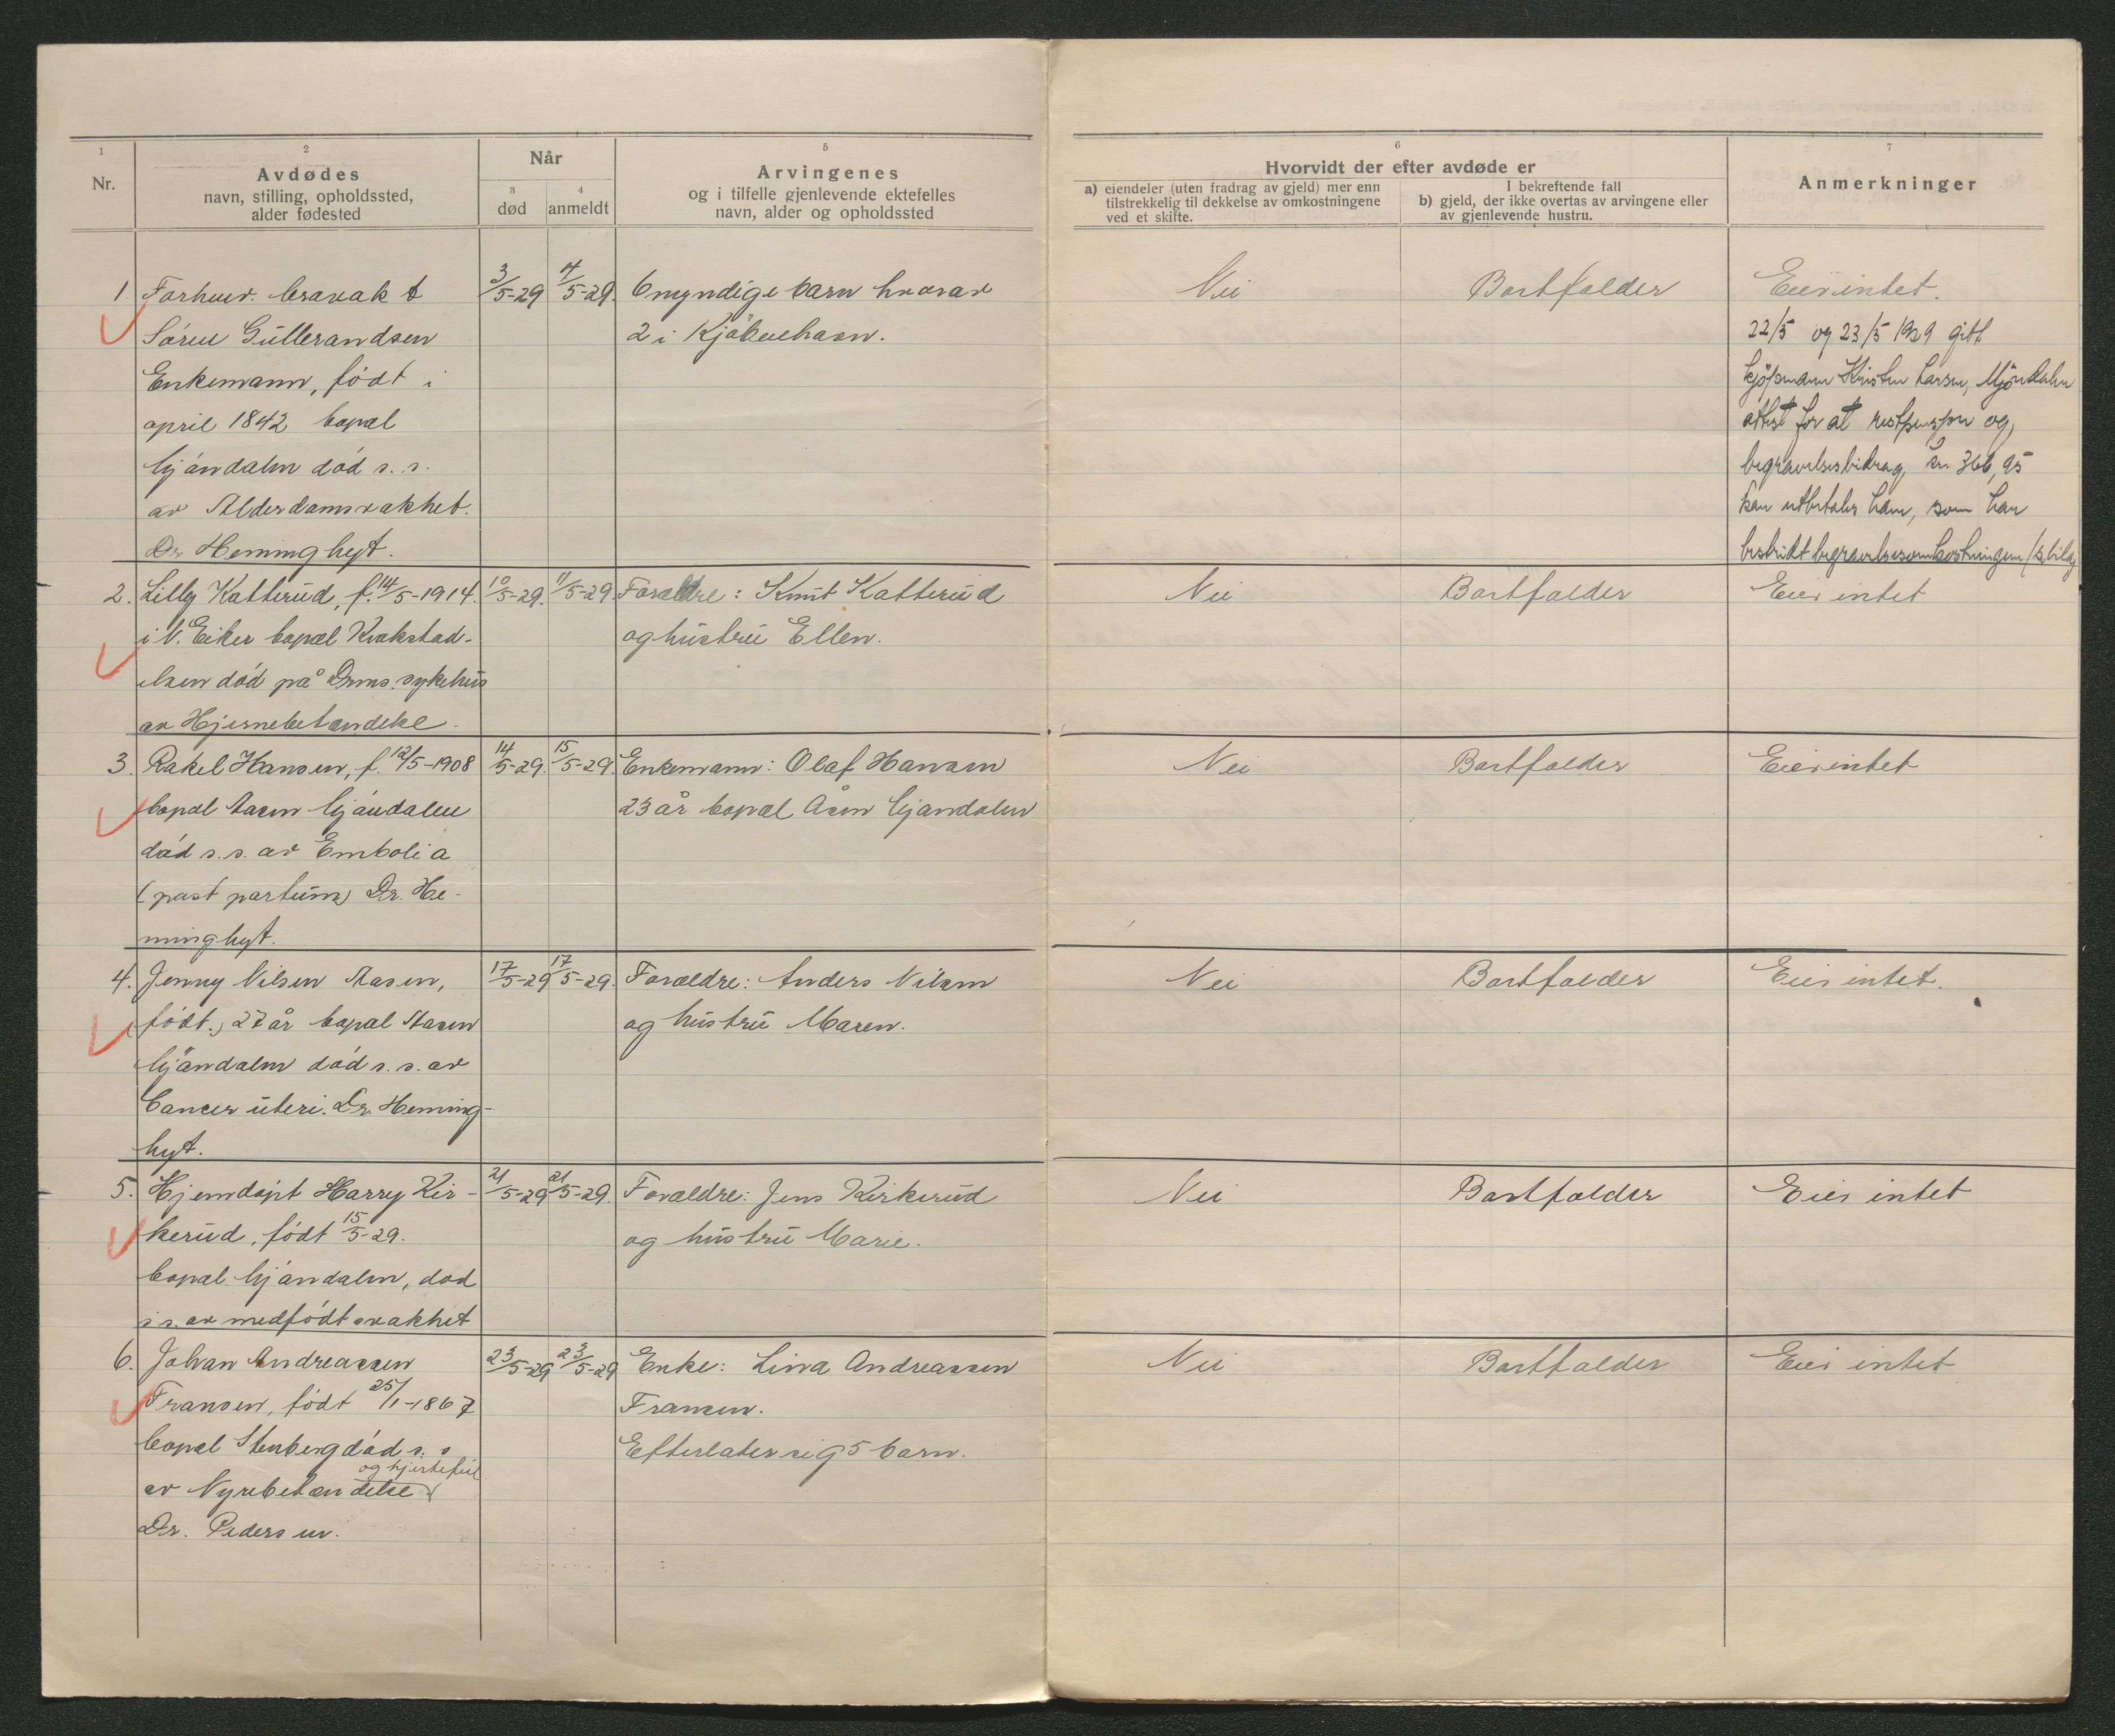 1
Nr.
2
Avdødes
navn, stilling, opholdssted,
alder fødested
Når
3
død
4
anmeldt
5
Arvingenes
og i tilfelle gjenlevende ektefelles
navn, alder og opholdssted
6
Hvorvidt der efter avdøde er
a) eiendeler (uten fradrag av gjeld) mer enn
tilstrekkelig til dekkelse av omkostningene
ved et skifte.
I bekreftende fall
b) gjeld, der ikke overtas av arvingene eller
av gjenlevende hustru.
7
Anmerkninger
1 Forhenv.
Søren Gullerandsen
Enkemann, født i
april 1842 bopæl
Mjøndalen død s. s.
av Alderdomsvakhet.
Dr Heminghyt.
3/5-29 4/5-29
6 myndige barn hvorav
2 i Kjøbenhavn.
Nei
Bortfalder
Eier intet.
22/5 og 23/5 1929 gitt
kjøpmann Kristen Larsen, Mjøndalen
attest for at restpensjon og
begravelsesbidrag, kr. 366,95
kan utbetales ham, som har
bestridt begravelsesomkostningen
2. Lilly Katterud, f. 14/5-1914
i N. Eiker bopæl Krokstad-
elven død på Drms. sykehus
av Hjernebetændelse.
10/5-29. 11/5-29.
Forældre: Knut Katterud
og hustru Ellen.
Nei
Bortfalder
Eier intet
3. Rakel Hansen, f. 12/5-1908
bopæl Aasen Mjøndalen
død s. s. av Embolia
(post partum) Dr. He-
minghyt.
14/5-29. 15/5-29.
Enkemann: Olaf Hansen
23 år bopæl Åsen Mjøndalen
Nei
Bortfalder
Eier intet
4. Jenny Nilsen Aasen,
født., 27 år bopæl Aasen
Mjøndalen død s. s. av
Cancer uteri. Dr. Heming-
hyt.
17/5-29 17/5-29.
Forældre: Anders Nilsen
og hustru Maren.
Nei
Bortfalder
Eier intet.
5. Hjemdøpt Harry Kir-
kerud, født 15/5-29.
bopæl Mjøndalen, død
s s. av medfødt svakhet
21/5-29 21/5-29.
Forældre: Jens Kirkerud
og hustru Marie.
Nei
Bortfalder
Eier intet
6. Johan Andreassen
Fransen, født 25/1-1867
bopæl Stenberg død s. s
og hjertefeil
av Nyrebetændelse
Dr. Pedersen.
23/5-29 23/5-29
Enke: Lina Andreassen
Fransen.
Efterlater sig 5 barn.
Nei
Bortfalder
Eier intet